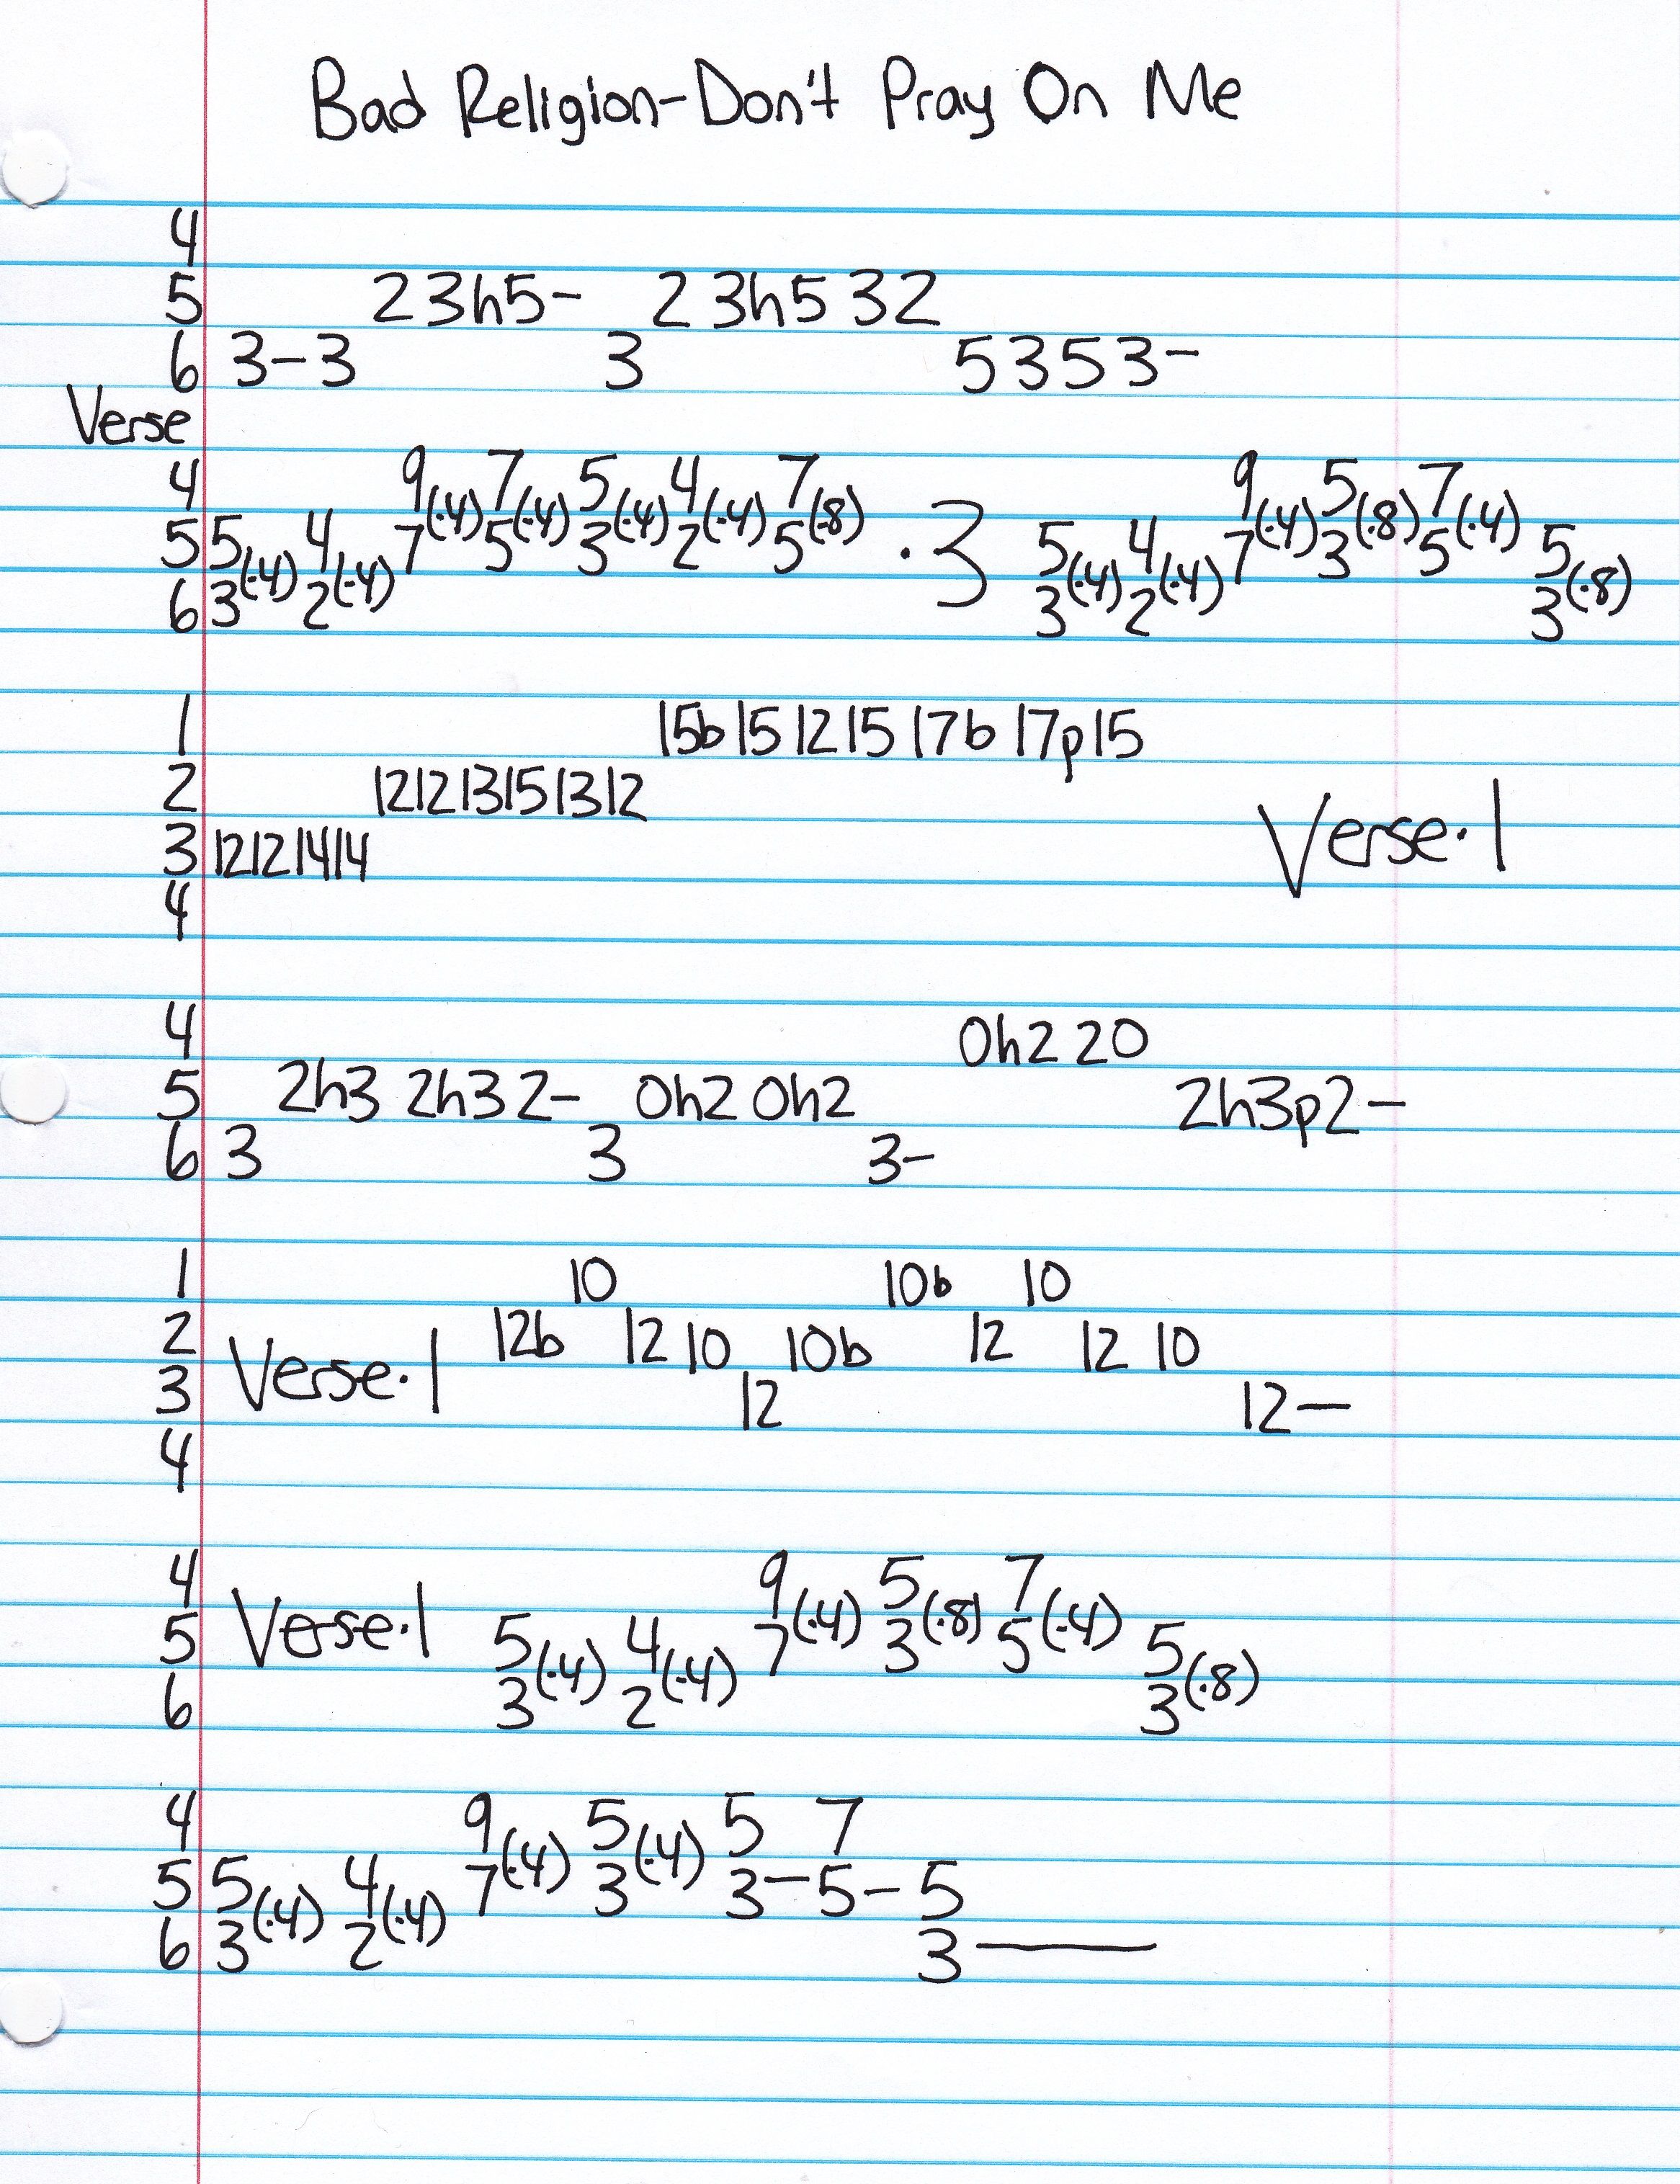 Bad Religion-Don't Pray On Me
4
5 2 3h5- 2 3h5 32
6 3-3 3 5353-
Verse
4 9 7 5 4 7 9 5 7
5 5 4 7(·4) 5(·4) 3(·4) 2(·4) 5(·8) ·3 5 4 7(·4) 3(·8) 5(·4) 5
6 3(·4) 2(·4) 3(·4) 2(·4) 3(·8)
1 15b 15 12 15 17b 17p15
2 12 12 13 15 13 12
3 12 12 14 14 Verse·1
4
4 0h2 20
5 2h3 2h3 2- 0h2 0h2 2h3p2-
6 3 3 3-
1 10 10b 10
2 12b 12 10 10b 12 12 10
3 Verse·1 12 12-
4
4 9 5 7
5 Verse·1 5 4 7(·4) 3(·8) 5(·4) 5
6 3(·4) 2(·4) 3(·8)
4 9 5 5 7
5 5 4 7(·4) 3(·4) 3-5-5
6 3(·4) 2(·4) 3-